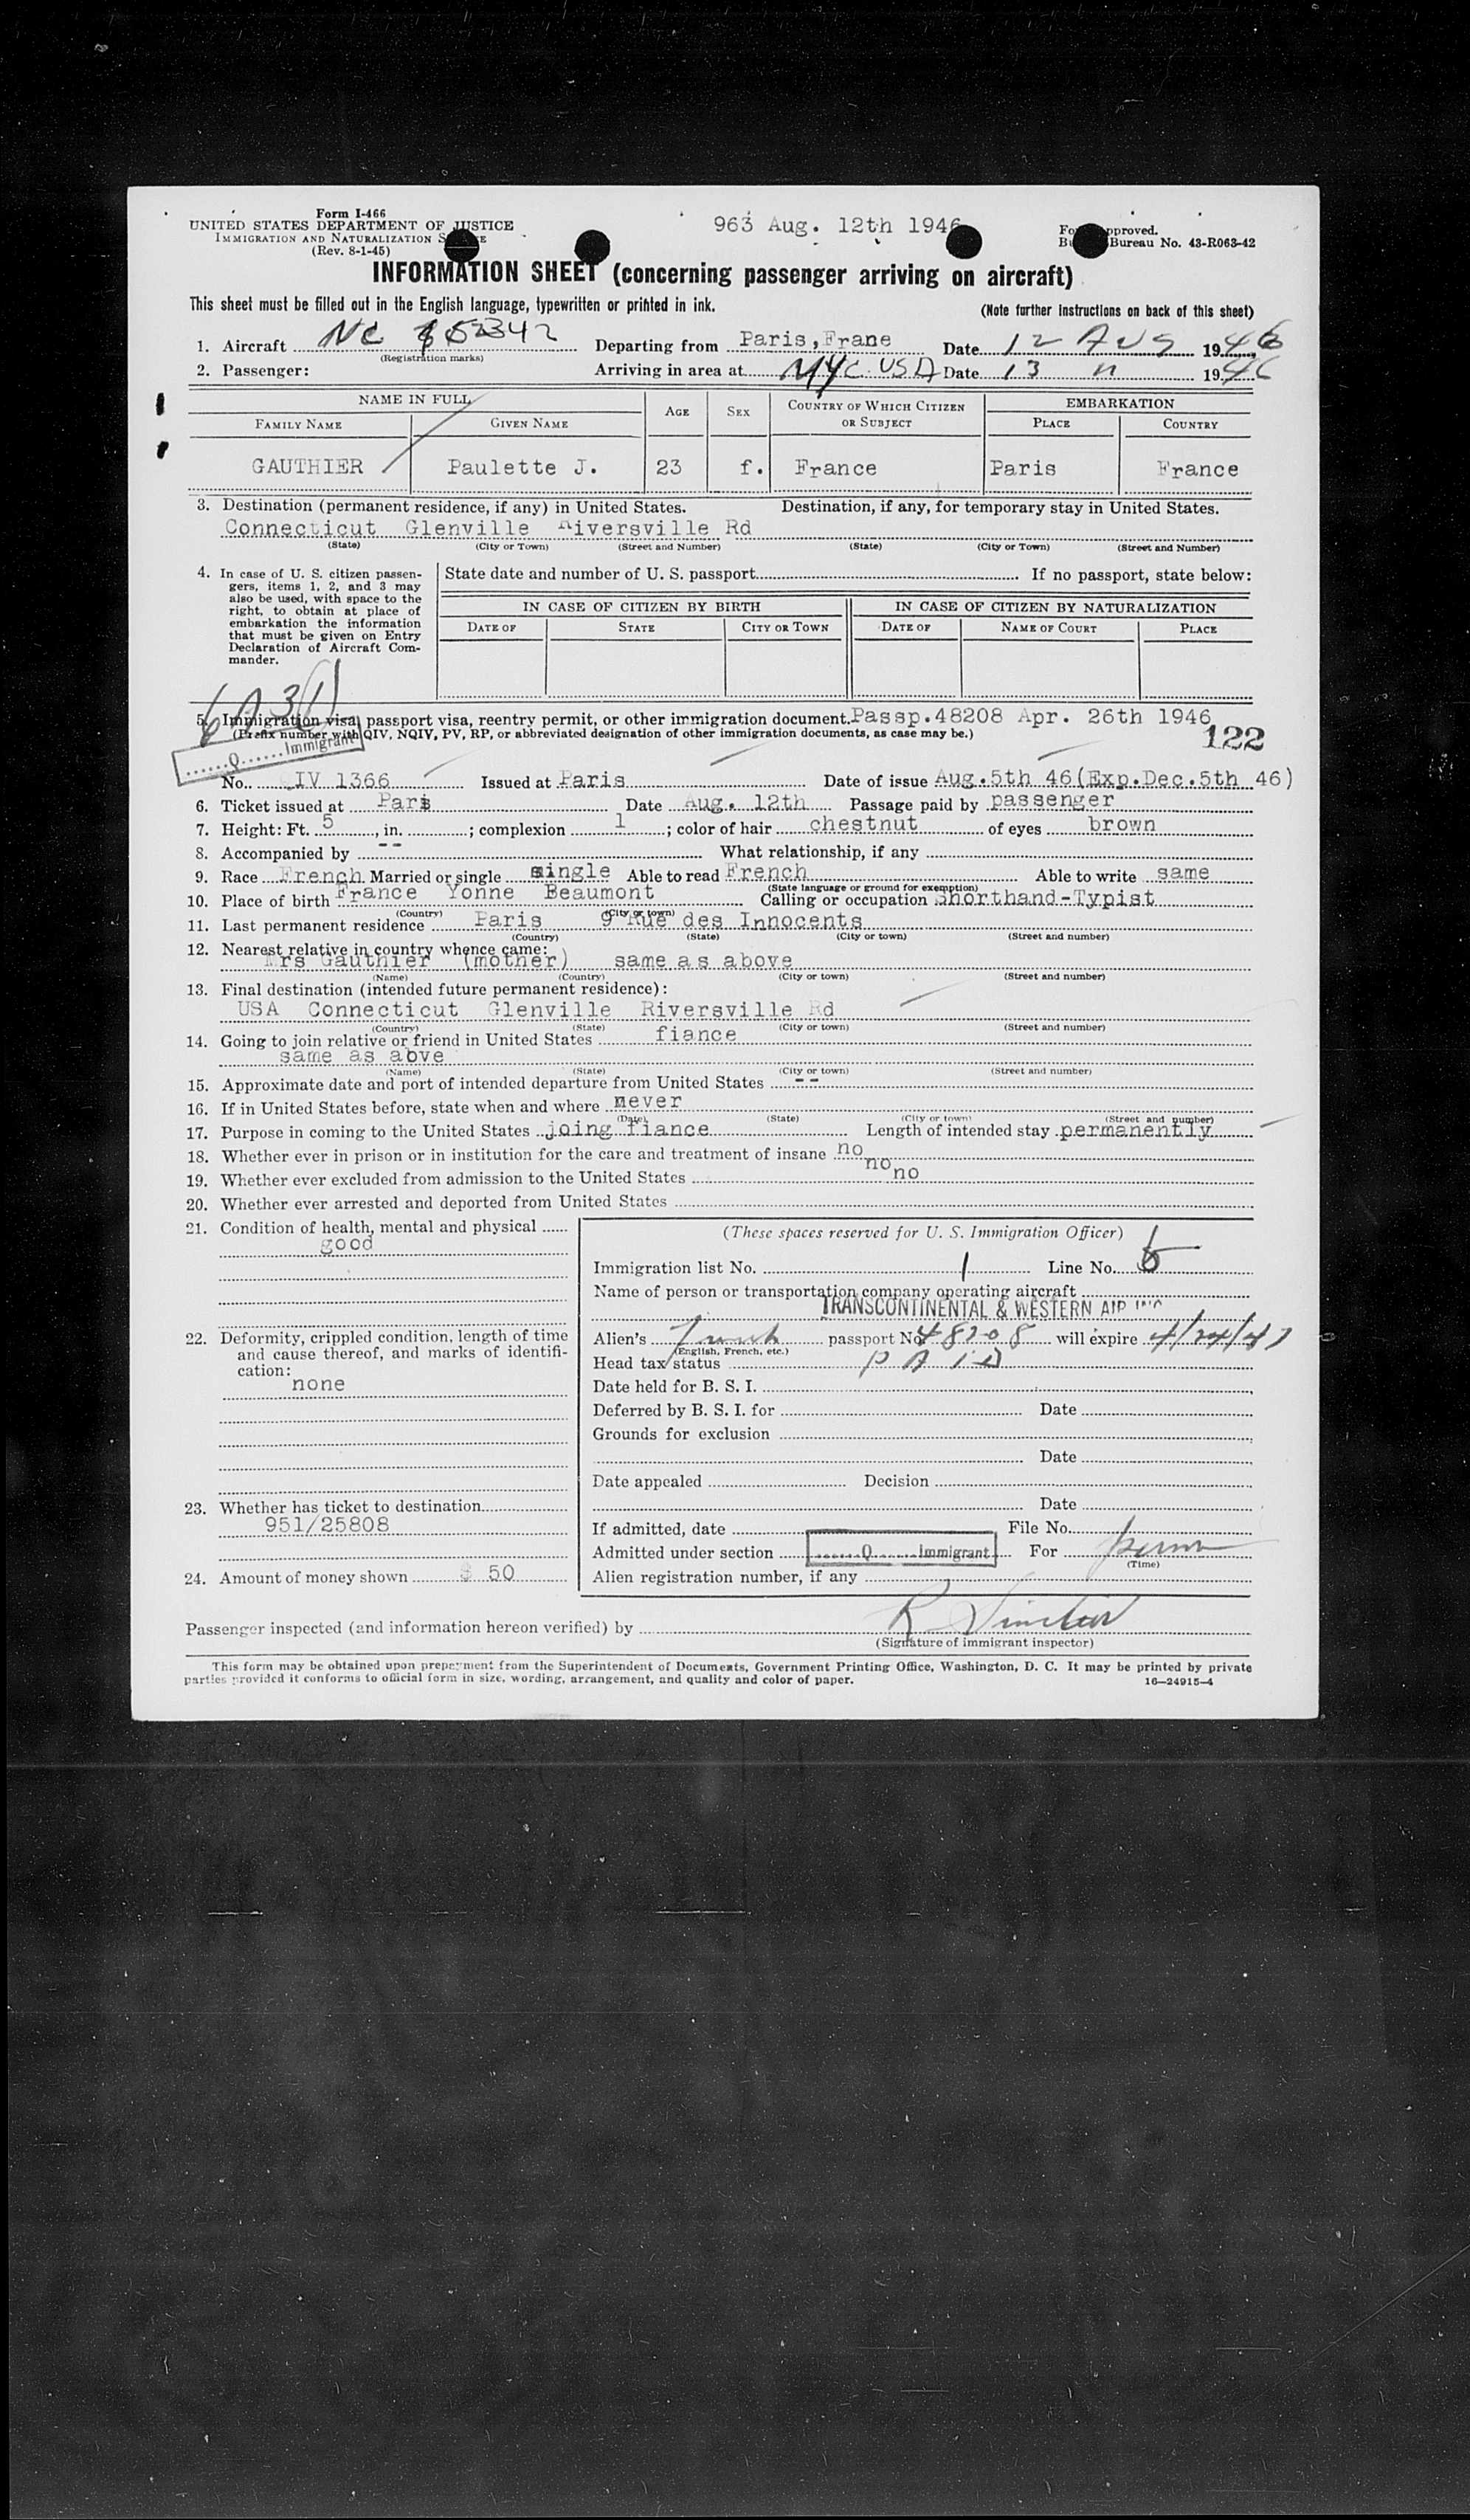 Form I-466
UNITED STATES DEPARTMENT OF JUSTICE
IMMIGRATION AND NATURALIZATION S E
(Rev. 8-1-45)
963 Aug. 12th 1946
Fo pproved.
B Bureau No. 43-R063-42
INFORMATION SHEET (concerning passenger arriving on aircraft)
This sheet must be filled out in the English language, typewritten or printed in ink. (Note further instructions on back of this sheet)
1. Aircraft NC Departing from Paris, Frane Date 12 Aug 1946
(Registration marks)
2. Passenger: Arriving in area at NYC USA Date 13 " 1946
NAME IN FULL AGE SEX COUNTRY OF WHICH CITIZEN OR SUBJECT EMBARKATION
FAMILY NAME GIVEN NAME PLACE COUNTRY
GAUTHIER Paulette J. 23 f. France Paris France
3. Destination (permanent residence, if any) in United States. Destination, if any, for temporary stay in United States.
Connecticut Glenville Riversville Rd
(State) (City or Town) (Street and Number) (State) (City or Town) (Street and Number)
4. In case of U. S. citizen passen-
gers, items 1, 2, and 3 may
also be used, with space to the
right, to obtain at place of
embarkation the information
that must be given on Entry
Declaration of Aircraft Com-
mander.
State date and number of U. S. passport If no passport, state below:
IN CASE OF CITIZEN BY BIRTH IN CASE OF CITIZEN BY NATURALIZATION
DATE OF STATE CITY OR TOWN DATE OF NAME OF COURT PLACE
5. Immigration visa, passport visa, reentry permit, or other immigration document. Passp.48208 Apr. 26th 1946
(Prefix number with QIV, NQIV, PV, RP, or abbreviated designation of other immigration documents, as case may be.) 122
Q Immigrant
No. IV 1366 Issued at Paris Date of issue Aug.5th 46(Exp.Dec.5th 46)
6. Ticket issued at Paris Date Aug. 12th Passage paid by passenger
7. Height: Ft. 5, in. ; complexion l ; color of hair chestnut of eyes brown
8. Accompanied by -- What relationship, if any
9. Race French Married or single single Able to read French Able to write same
(State language or ground for exemption)
10. Place of birth France Yonne Beaumont Calling or occupation Shorthand-Typist
(Country) (City or town)
11. Last permanent residence Paris 9 Rue des Innocents
(Country) (State) (City or town) (Street and number)
12. Nearest relative in country whence came:
Mrs Gauthier (mother) same as above
(Name) (Country) (City or town) (Street and number)
13. Final destination (intended future permanent residence):
USA Connecticut Glenville Riversville Rd
(Country) (State) (City or town) (Street and number)
14. Going to join relative or friend in United States fiance
same as abve
(Name) (State) (City or town) (Street and number)
15. Approximate date and port of intended departure from United States --
16. If in United States before, state when and where never
(Date) (State) (City or town) (Street and number)
17. Purpose in coming to the United States joing fiance Length of intended stay permanently
18. Whether ever in prison or in institution for the care and treatment of insane no
19. Whether ever excluded from admission to the United States no
20. Whether ever arrested and deported from United States no
21. Condition of health, mental and physical
good
22. Deformity, crippled condition, length of time
and cause thereof, and marks of identifi-
cation:
none
23. Whether has ticket to destination
951/25808
24. Amount of money shown $ 50
(These spaces reserved for U. S. Immigration Officer)
Immigration list No. 1 Line No.
Name of person or transportation company operating aircraft
TRANSCONTINENTAL & WESTERN AIR INC
Alien's French passport No. 48208 will expire 4/24/47
(English, French, etc.)
Head tax status PAID
Date held for B. S. I.
Deferred by B. S. I. for Date
Grounds for exclusion
Date
Date appealed Decision
Date
If admitted, date File No.
Admitted under section Q Immigrant For perm
(Time)
Alien registration number, if any
Passenger inspected (and information hereon verified) by R Sinclair
(Signature of immigrant inspector)
This form may be obtained upon prepayment from the Superintendent of Documents, Government Printing Office, Washington, D. C. It may be printed by private
parties provided it conforms to official form in size, wording, arrangement, and quality and color of paper. 16—24915-4